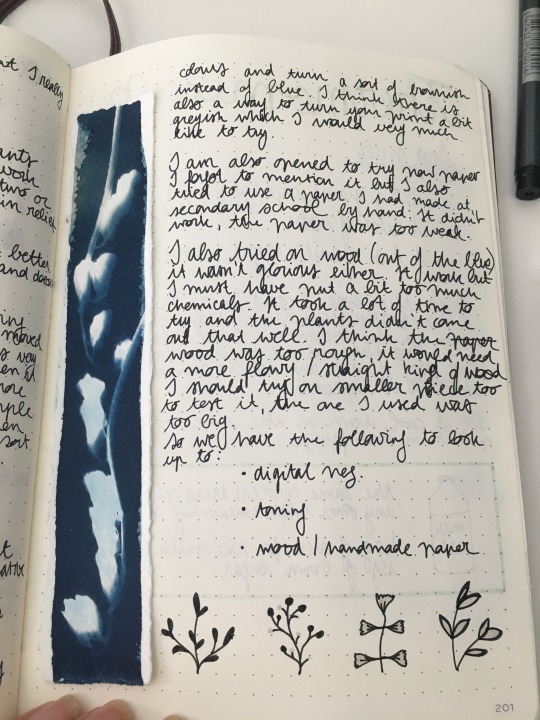 at I really
ants
work
two or
in relief
better
moved
very
ple
colours and turn a sort of brownish
instead of blue. I think there is
also a way to turn your print a bit
greyish which I would very much
like to try.
I am also opened to try new paper
I forgot to mention it but I also
tried to use a paper I had made at
secondary school by hand. It didn't
work, the paper was too weak.
I also tried on wood (out of the blue)
it wasn't glorious either. It work but
I must have put a bit too much
chemicals. It took a lot of time to
try and the plants didn't come
out that well. I think the paper
wood was too rough, it would need
a more flowy / straight kind of wood
I should try on smaller piece too
to test it, the one I used was
too big.
So we have the following to look
up to:
• digital neg.
• toning
• wood / handmade paper
201